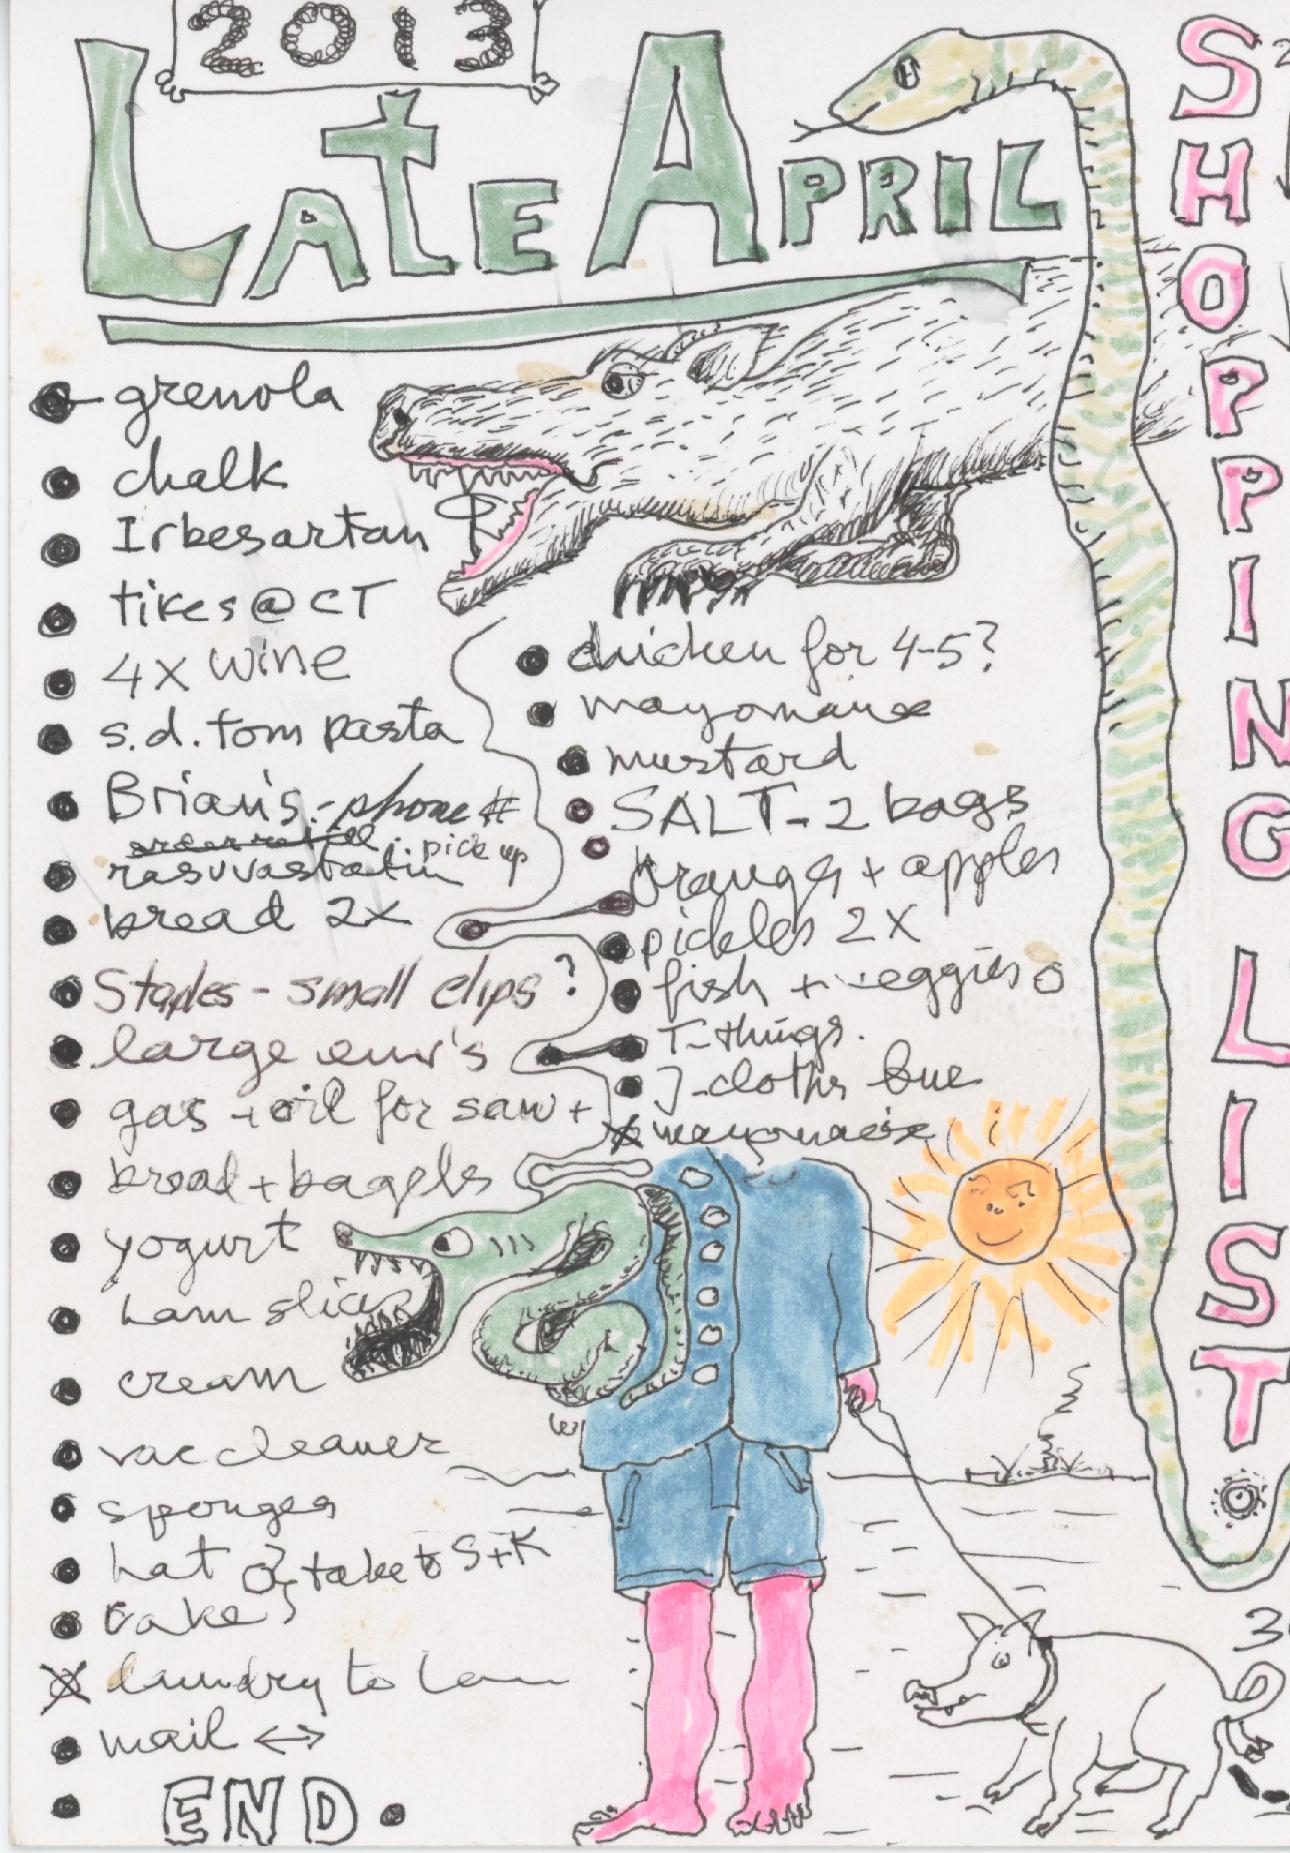 2013
LATE APRIL
SHOPPING LIST
grenola
chalk
Irbesartan
tikes @ CT
4x wine
s.d. tom pasta
Brian's - phone #
rasuvastatin : pick up
bread 2x
Staples - small clips?
large env's
gas + oil for saw +
bread + bagels
yogurt
ham slices
cream
vac cleaner
sponges
hat } take to S+K
rake
laundry to
mail <->
END.
chicken for 4-5?
mayonaise
mustard
SALT - 2 bags
oranges + apples
pickles 2X
fish + veggies
T-things.
J-cloths blue
mayonaise